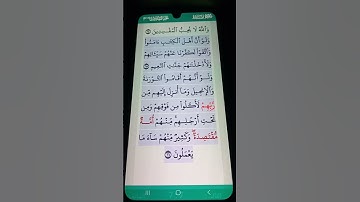 وَاللَّهُ لَا يُحِبُّ الْمُفْسِدِينَ
وَلَوْ أَنَّ أَهْلَ الْكِتَابِ ءَامَنُوا
وَاتَّقَوْا لَكَفَّرْنَا عَنْهُمْ سَيِّئَاتِهِمْ
وَلَأَدْخَلْنَاهُمْ جَنَّاتِ النَّعِيمِ
وَلَوْ أَنَّهُمْ أَقَامُوا التَّوْرَاةَ
وَالْإِنجِيلَ وَمَا أُنزِلَ إِلَيْهِم مِّن
رَّبِّهِمْ لَأَكَلُوا مِن فَوْقِهِمْ وَمِن
تَحْتِ أَرْجُلِهِم مِّنْهُمْ أُمَّةٌ
مُّقْتَصِدَةٌ وَكَثِيرٌ مِّنْهُمْ سَاءَ مَا
يَعْمَلُونَ